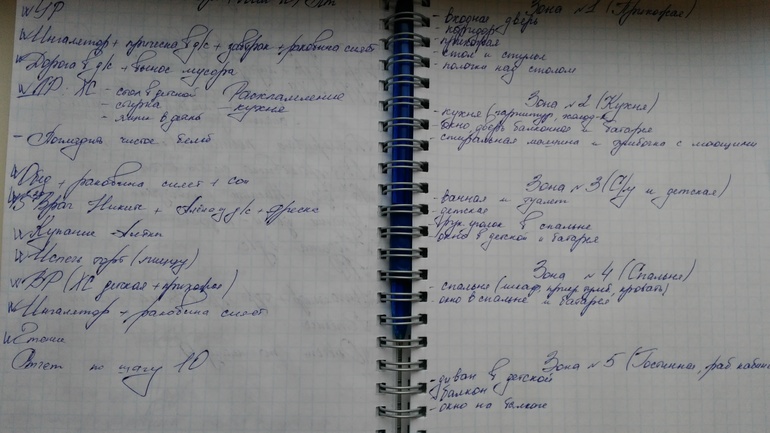 УР
Ингалятор + прическа в д/с + завтрак + раковина сияет
Дорога в д/с + вынос мусора
ДР: ХС - стол в детской
- стирка
Расхламление
кухня
- Погладить чистое белье
Обед + раковина сияет + сон
Врач Никите + Алёнку д/с +
Купание
Испечь торт (пиццу)
ВР (ХС детская + прихожая)
Ингалятор + раковина сияет
Отчет по шагу 10
Зона №1 (Прихожая)
- входная дверь
- коридор
- прихожая
- стол и стулья
- полочки над столом
Зона №2 (Кухня)
- кухня (гарнитур, холод-к)
- окно, дверь балконная и батарея
- стиральная машина и тумбочка с моющими
Зона №3 (С/у и детская)
- ванная и туалет
- детская
- уголок в спальне
- окно в детской и батарея
Зона №4 (Спальня)
- спальня (шкаф, кровать)
- окно в спальне и батарея
Зона №5 (Гостинная, раб кабин
- диван в детской
- балкон
- окно на балконе